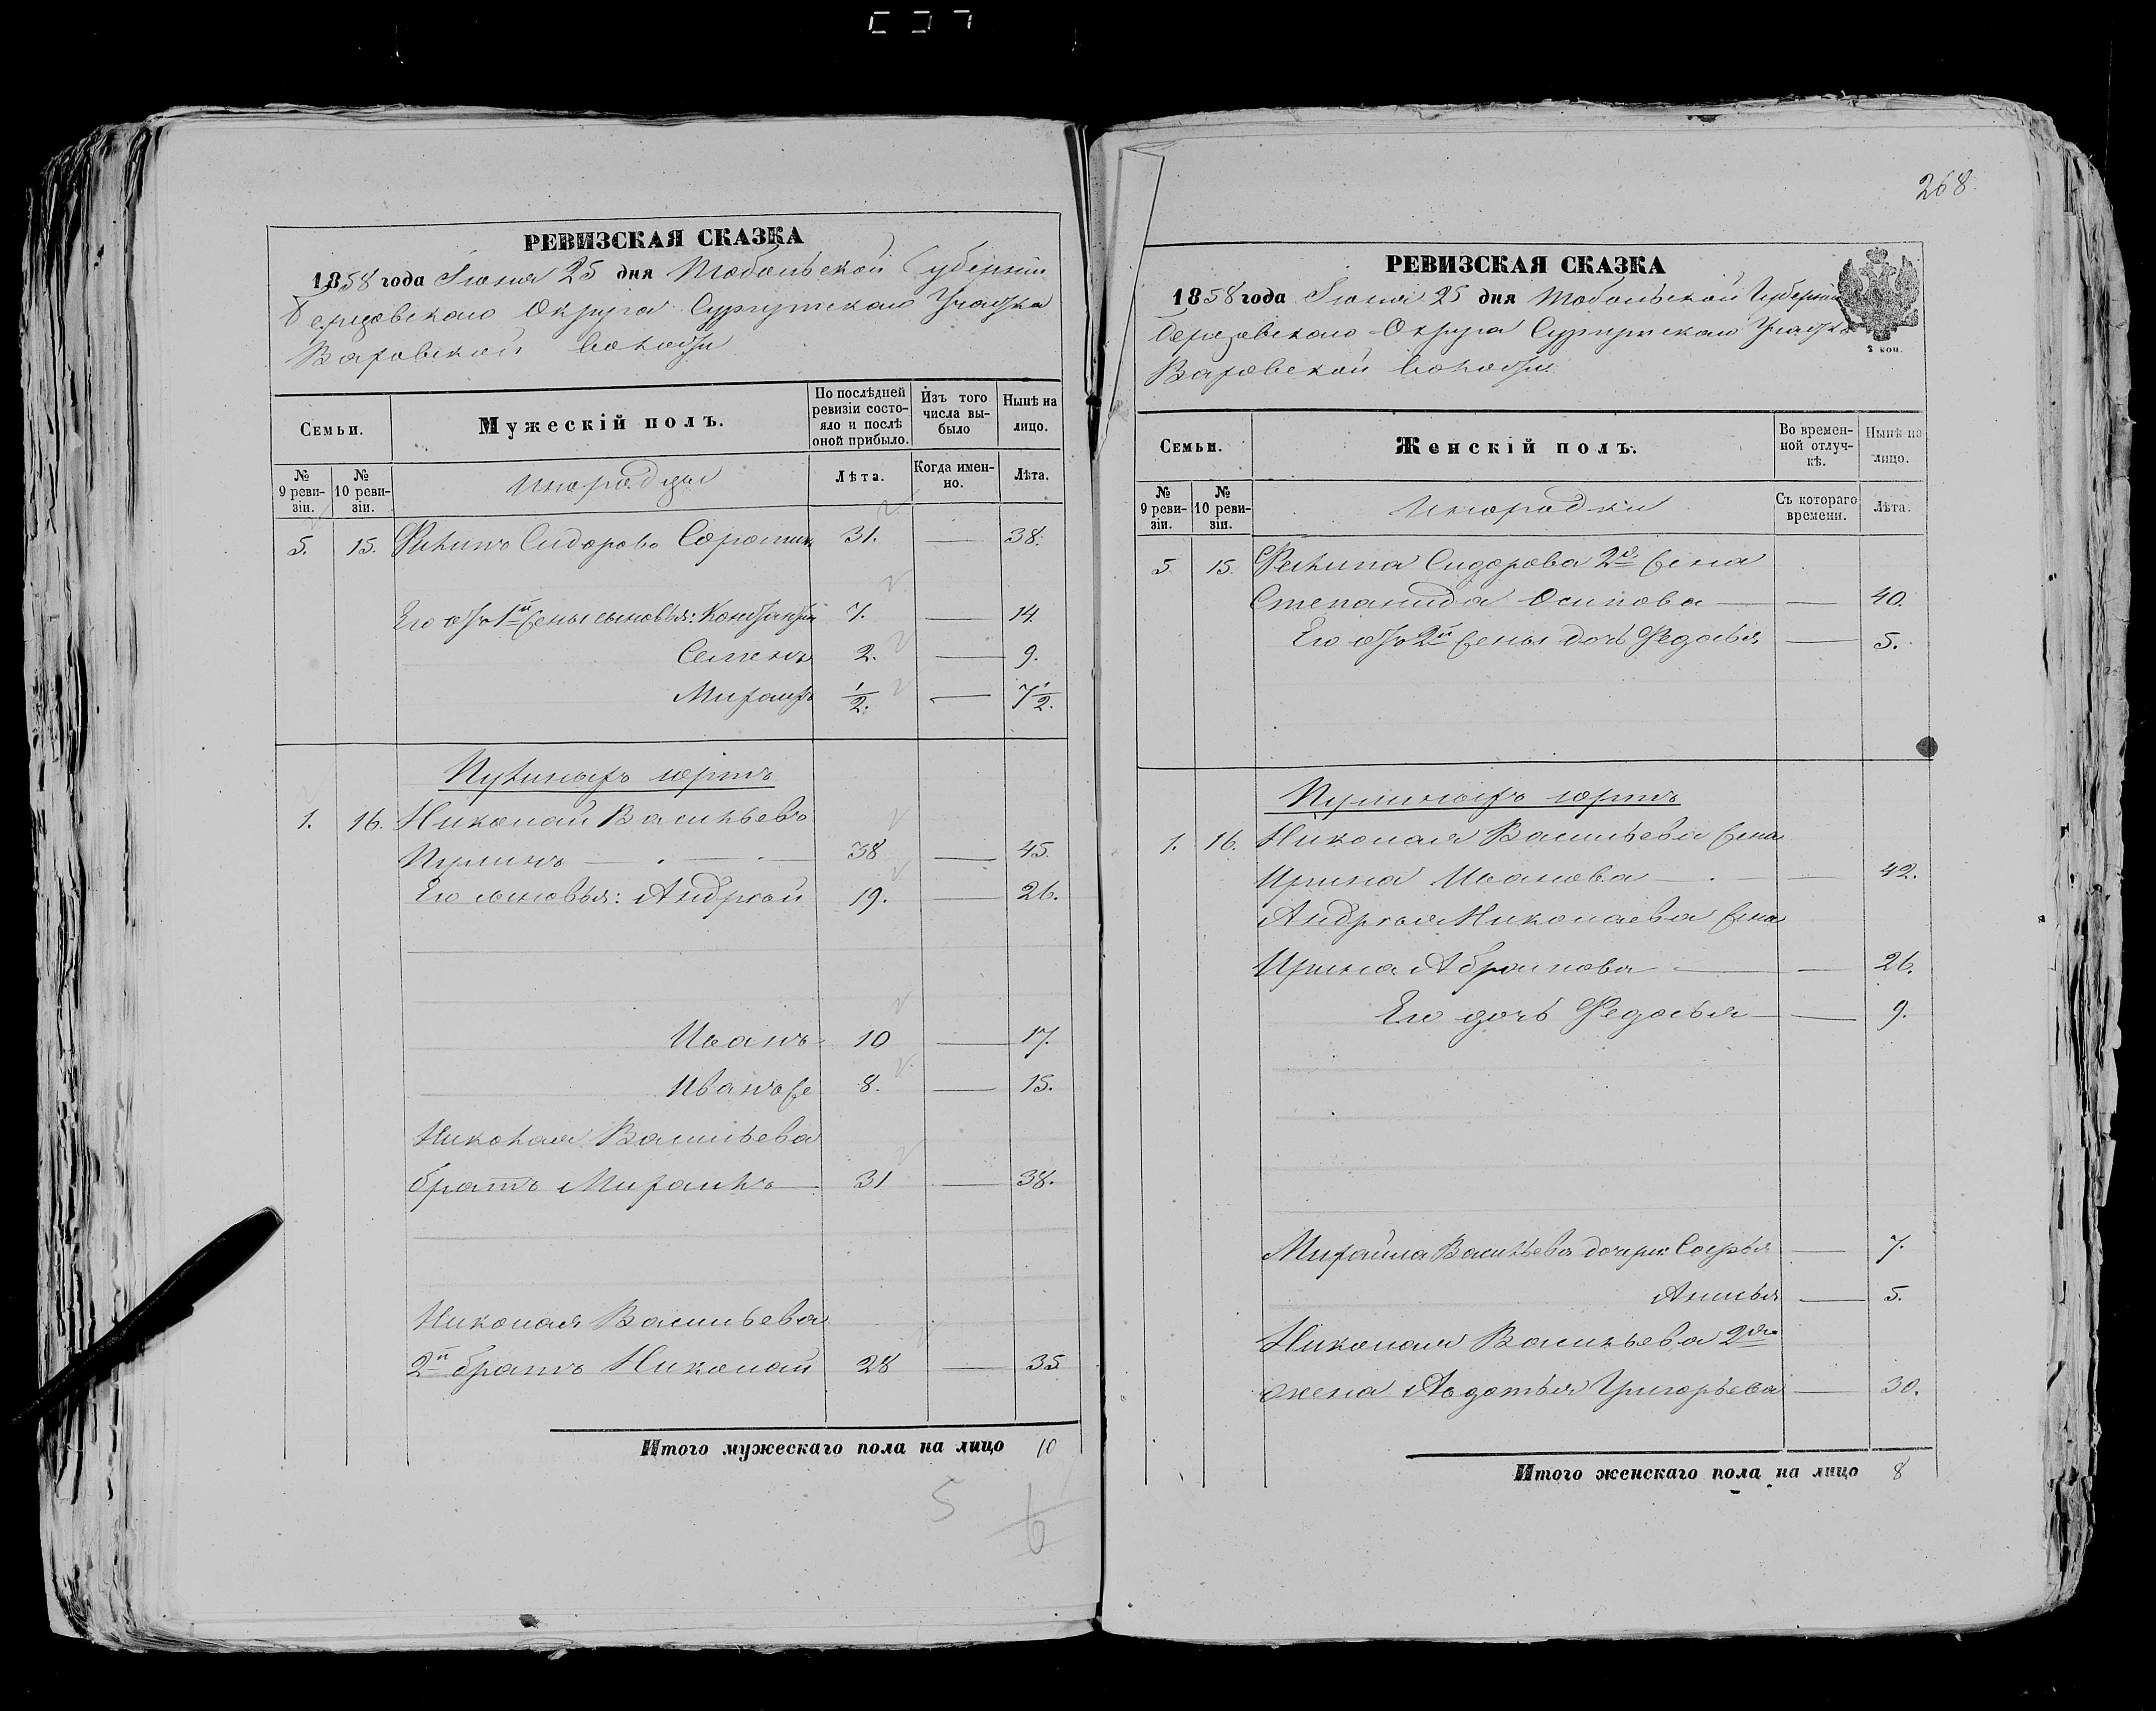 РЕВИЗСКАЯ СКАЗКА
1858 года Июня 25 дня Тобольской Губерніи
Березовскаго Округа Сургутскаго Участка
Ваховской волости
Семьи.
Мужескій полъ.
По послѣдней ревизіи состояло и послѣ оной прибыло.
Изъ того числа выбыло
Нынѣ на лицо.
№ 9 ревизіи.
№ 10 ревизіи.
Инородцы
Лѣта.
Когда именно.
Лѣта.
5. 15. Филипъ Сидоровъ 31. — 38.
Его отъ 1й жены сыновья: Константинъ 7. — 14.
Семенъ 2. — 9.
Михаилъ 1/2. — 7 1/2.
юртъ
1. 16. Николай Васильевъ
38 — 45.
Его сыновья: Андрей 19. — 26.
Иванъ 10 — 17.
Иванъ же 8. — 15.
Николая Васильева
братъ Михаилъ 31 — 38.
Николая Васильева
2й братъ Николай 28 — 35
Итого мужескаго пола на лицо 10
5 6
268.
РЕВИЗСКАЯ СКАЗКА
1858 года Июня 25 дня Тобольской Губерніи
Березовскаго Округа Сургутскаго Участка
Ваховской волости.
2 коп.
Семьи.
Женскій полъ.
Во временной отлучкѣ.
Нынѣ на лицо.
№ 9 ревизіи.
№ 10 ревизіи.
Инородки
Съ котораго времени.
Лѣта.
5 15. Филипа Сидорова 2я жена
Степанида Осипова — — 40.
Его отъ 2й жены дочь Федосья — 5.
юртъ
1. 16. Николая Васильева жена
Ирина Иванова — 42.
Андрея Николаева жена
Ирина Абрамова — — 26.
Его дочь Федосья — — 9.
Михаила Васильева дочери: Софья — 7.
Анисья — 5.
Николая Васильева 2го
жена Авдотья Григорьева — 30.
Итого женскаго пола на лицо 8